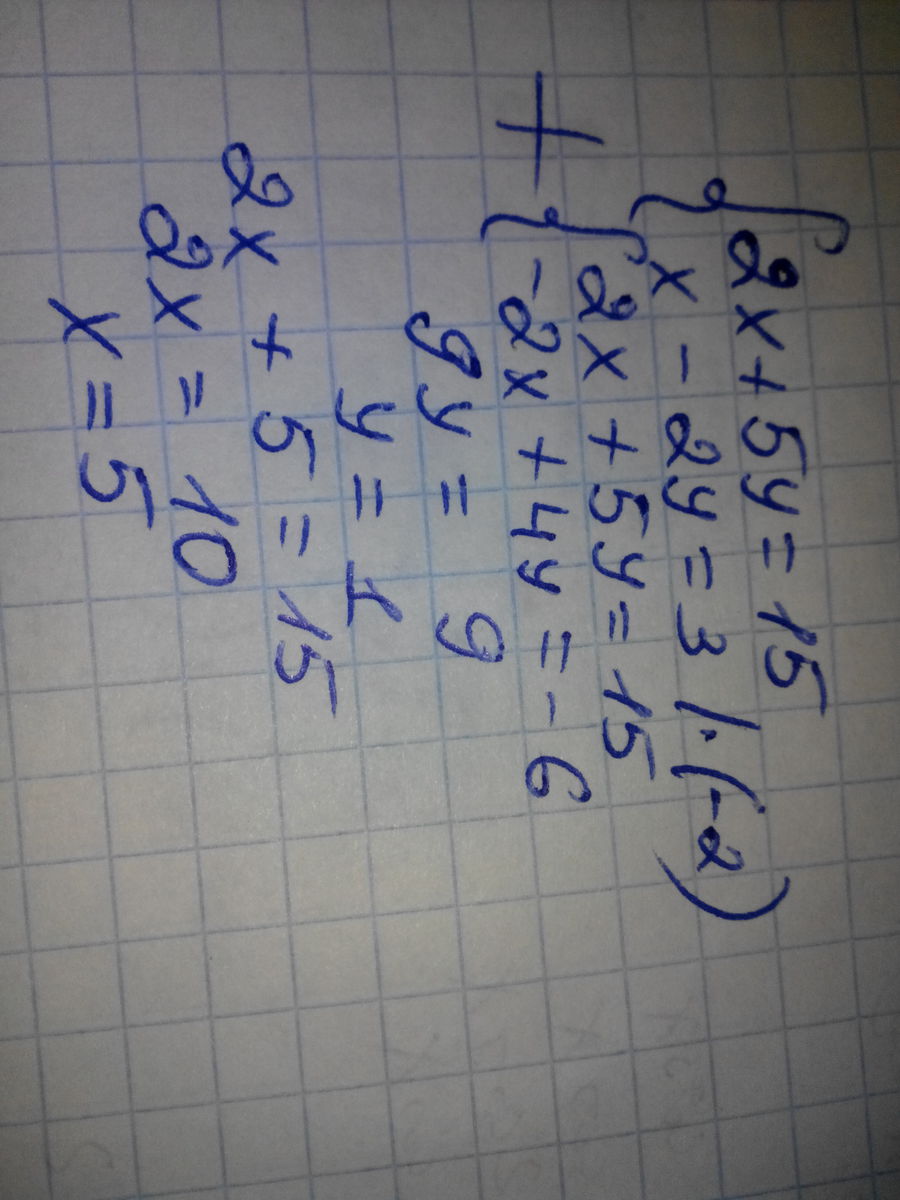 {2x + 5y = 15
{x - 2y = 3 |·(-2)
+ {2x + 5y = 15
{-2x + 4y = -6
9y = 9
y = 1
2x + 5 = 15
2x = 10
x = 5